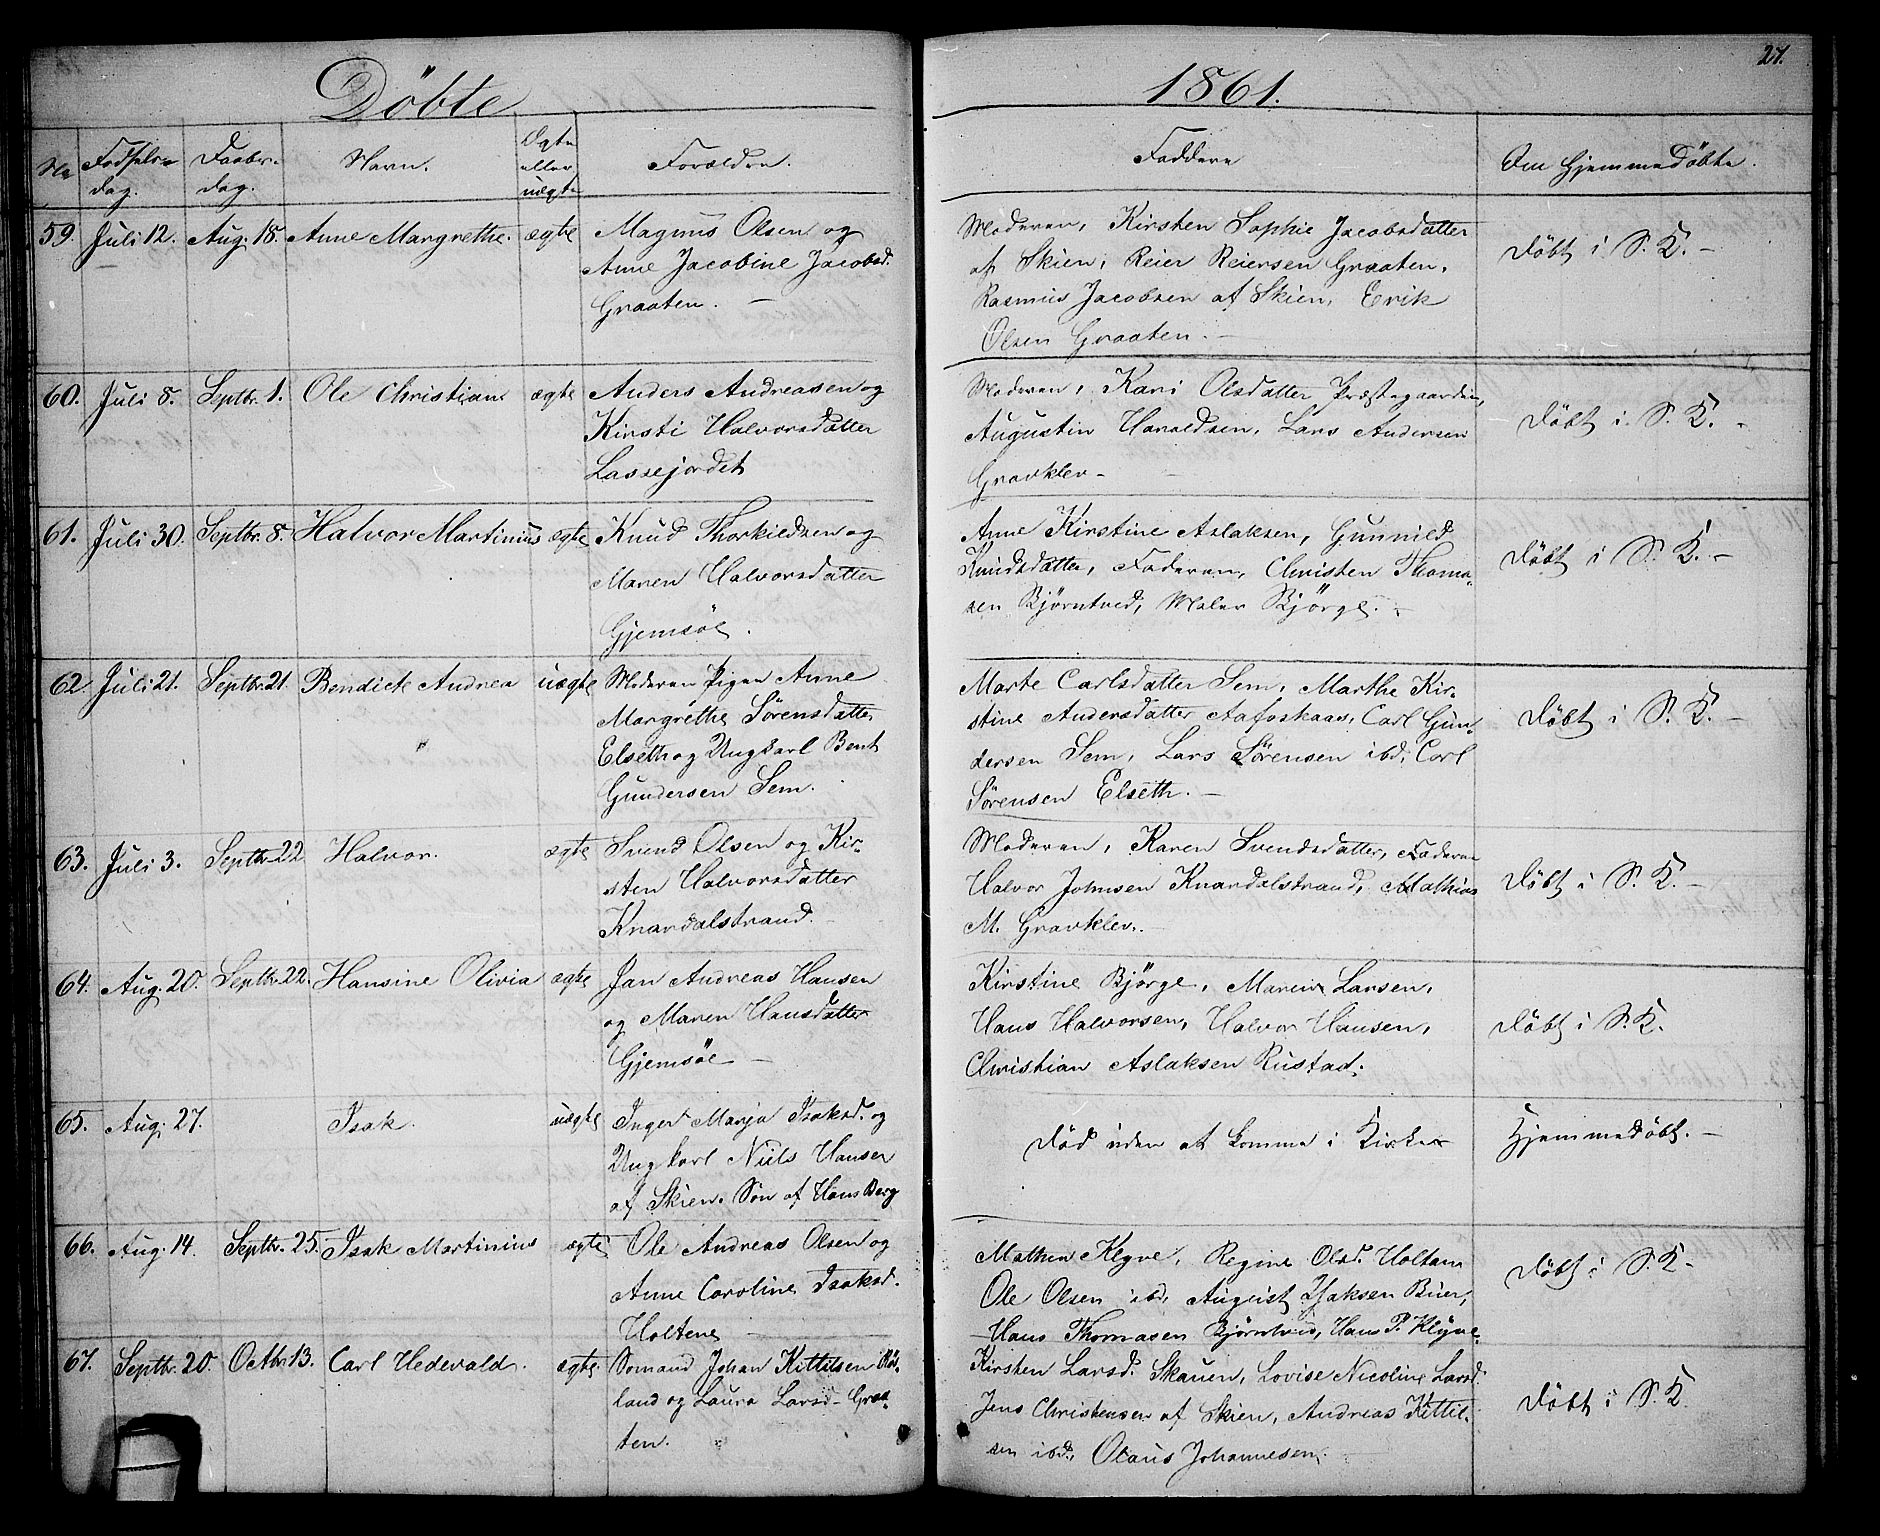 Döbte
1861.
27.
No
Fødsels-
dag.
Daabs-
dag.
Navn.
Ægte
eller
uægte
Forældre.
Faddere
Om Hjemmedöbte.
59. Juli 12. Aug. 18. Anne Margrethe. ægte
Magnus Olsen og
Anne Jacobine Jacobsd.
Graaten. —
Moderen, Kirsten Sophie Jacobsdatter
af Skien, Reier Reiersen Graaten,
Rasmus Jacobsen af Skien, Erik
Olsen Graaten. —
Döbt i S. K. —
60. Juli 8. Septbr. 1. Ole Christian ægte
Anders Andreassen og
Kirsti Halvorsdatter
Lassejordet
Moderen, Kari Olsdatter Præstegaarden,
Augustin Haroldsen, Lars Andersen
Gravklev —
Döbt i S. K. -
61. Juli 30. Septbr. 8. Halvor Martinius ægte
Knud Thorkildsen og
Maren Halvorsdatter
Gjemsöe.
Anne Kirstine Aslaksen, Gunnild
Knudsdatter, Faderen, Christen Thoma-
sen Björntved, Maler Björge. -
Döbt i S. K. —
62. Juli 21. Septbr. 21. Bendick Andrea uægte
Moderen Pigen Anne
Margrethe Sörensdatter
Elseth og Ungkarl Bent
Gundersen Sem.
Marte Carlsdatter Sem, Marthe Kir-
stine Andersdatter Aafoskaas, Carl Gun-
dersen Sem, Lars Sörensen ibd, Carl
Sörensen Elseth. —
Döbt i S. K. —
63. Juli 3. Septbr. 22 Halvor. ægte
Svend Olsen og Kir-
sten Halvorsdatter
Knardalstrand. -
Moderen, Karen Svendsdatter, Faderen
Halvor Johnsen Knardalstrand, Mathias
M. Gravklev. -
Döbt i S. K. —
64. Aug. 20. Septbr. 22. Hansine Olivia ægte
Jan Andreas Hansen
og Maren Hansdatter
Gjemsöe —
Kirstine Björge, Maren Larsen,
Hans Halvorsen, Halvor Hansen,
Christian Aslaksen Rustad.
Döbt i S. K.
65. Aug. 27. Isak. uægte
Inger Marja Isaksd. og
Ungkarl Niils Hansen
af Skien. Sön af Hans Berg
Död uden at komme i Kirken
Hjemmedöbt. —
66. Aug. 14. Septbr. 25. Isak Martinius ægte
Ole Andreas Olsen og
Anne Caroline Isaksd.
Holtene —
Mathea Klyve, Regine Olsd. Holtan
Ole Olsen ibd, August Isaksen Buer,
Hans Thomasen Björntved, Hans P. Klyve.
Döbt i S. K -
67. Septbr. 20. Octbr. 13. Carl Hedevald. ægte.
Sømand Johan Kittilsen
land og Laura Larsd. Graa-
ten.
Kirsten Larsd. Skauen, Lovise Nicoline Larsd.
Jens Christensen af Skien, Andreas Kittil-
sen ibd, Olaus Johannesen.
Döbt i S. K.